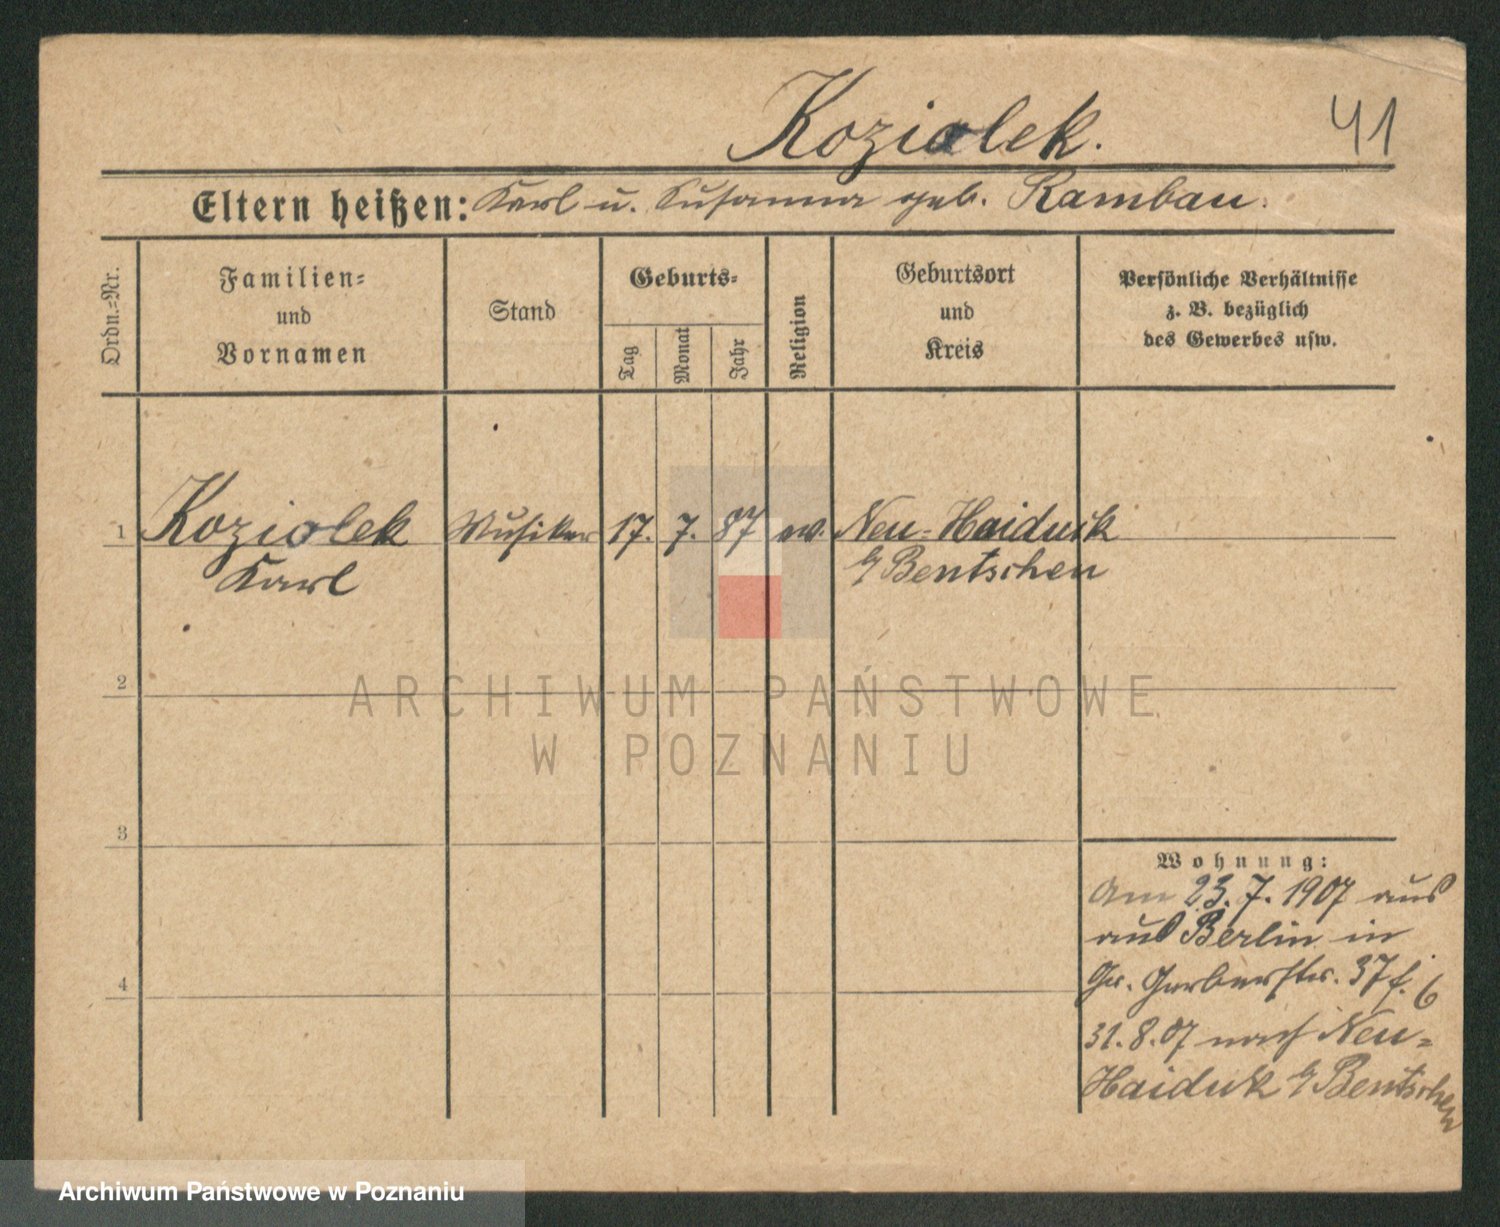 Koziolek. 41
Eltern heißen: Karl u. Susanna geb. Rambau.
Ordn.=Nr.
Familien=
und
Vornamen
Stand
Geburts=
Tag
Monat
Jahr
Religion
Geburtsort
und
Kreis
Persönliche Verhältnisse
z. B. bezüglich
des Gewerbes usw.
1 Koziolek Musiker 17. 7. 87 ev. Neu=Haiduk
Karl Bentschen
2
ARCHIWUM PAŃSTWOWE
W POZNANIU
3
Wohnung:
Am 23.7.1907 aus
aus Berlin in
Gr. Gerberstr. 37
31.8.07 nach Neu=
Haiduk Bentschen
4
Archiwum Państwowe w Poznaniu